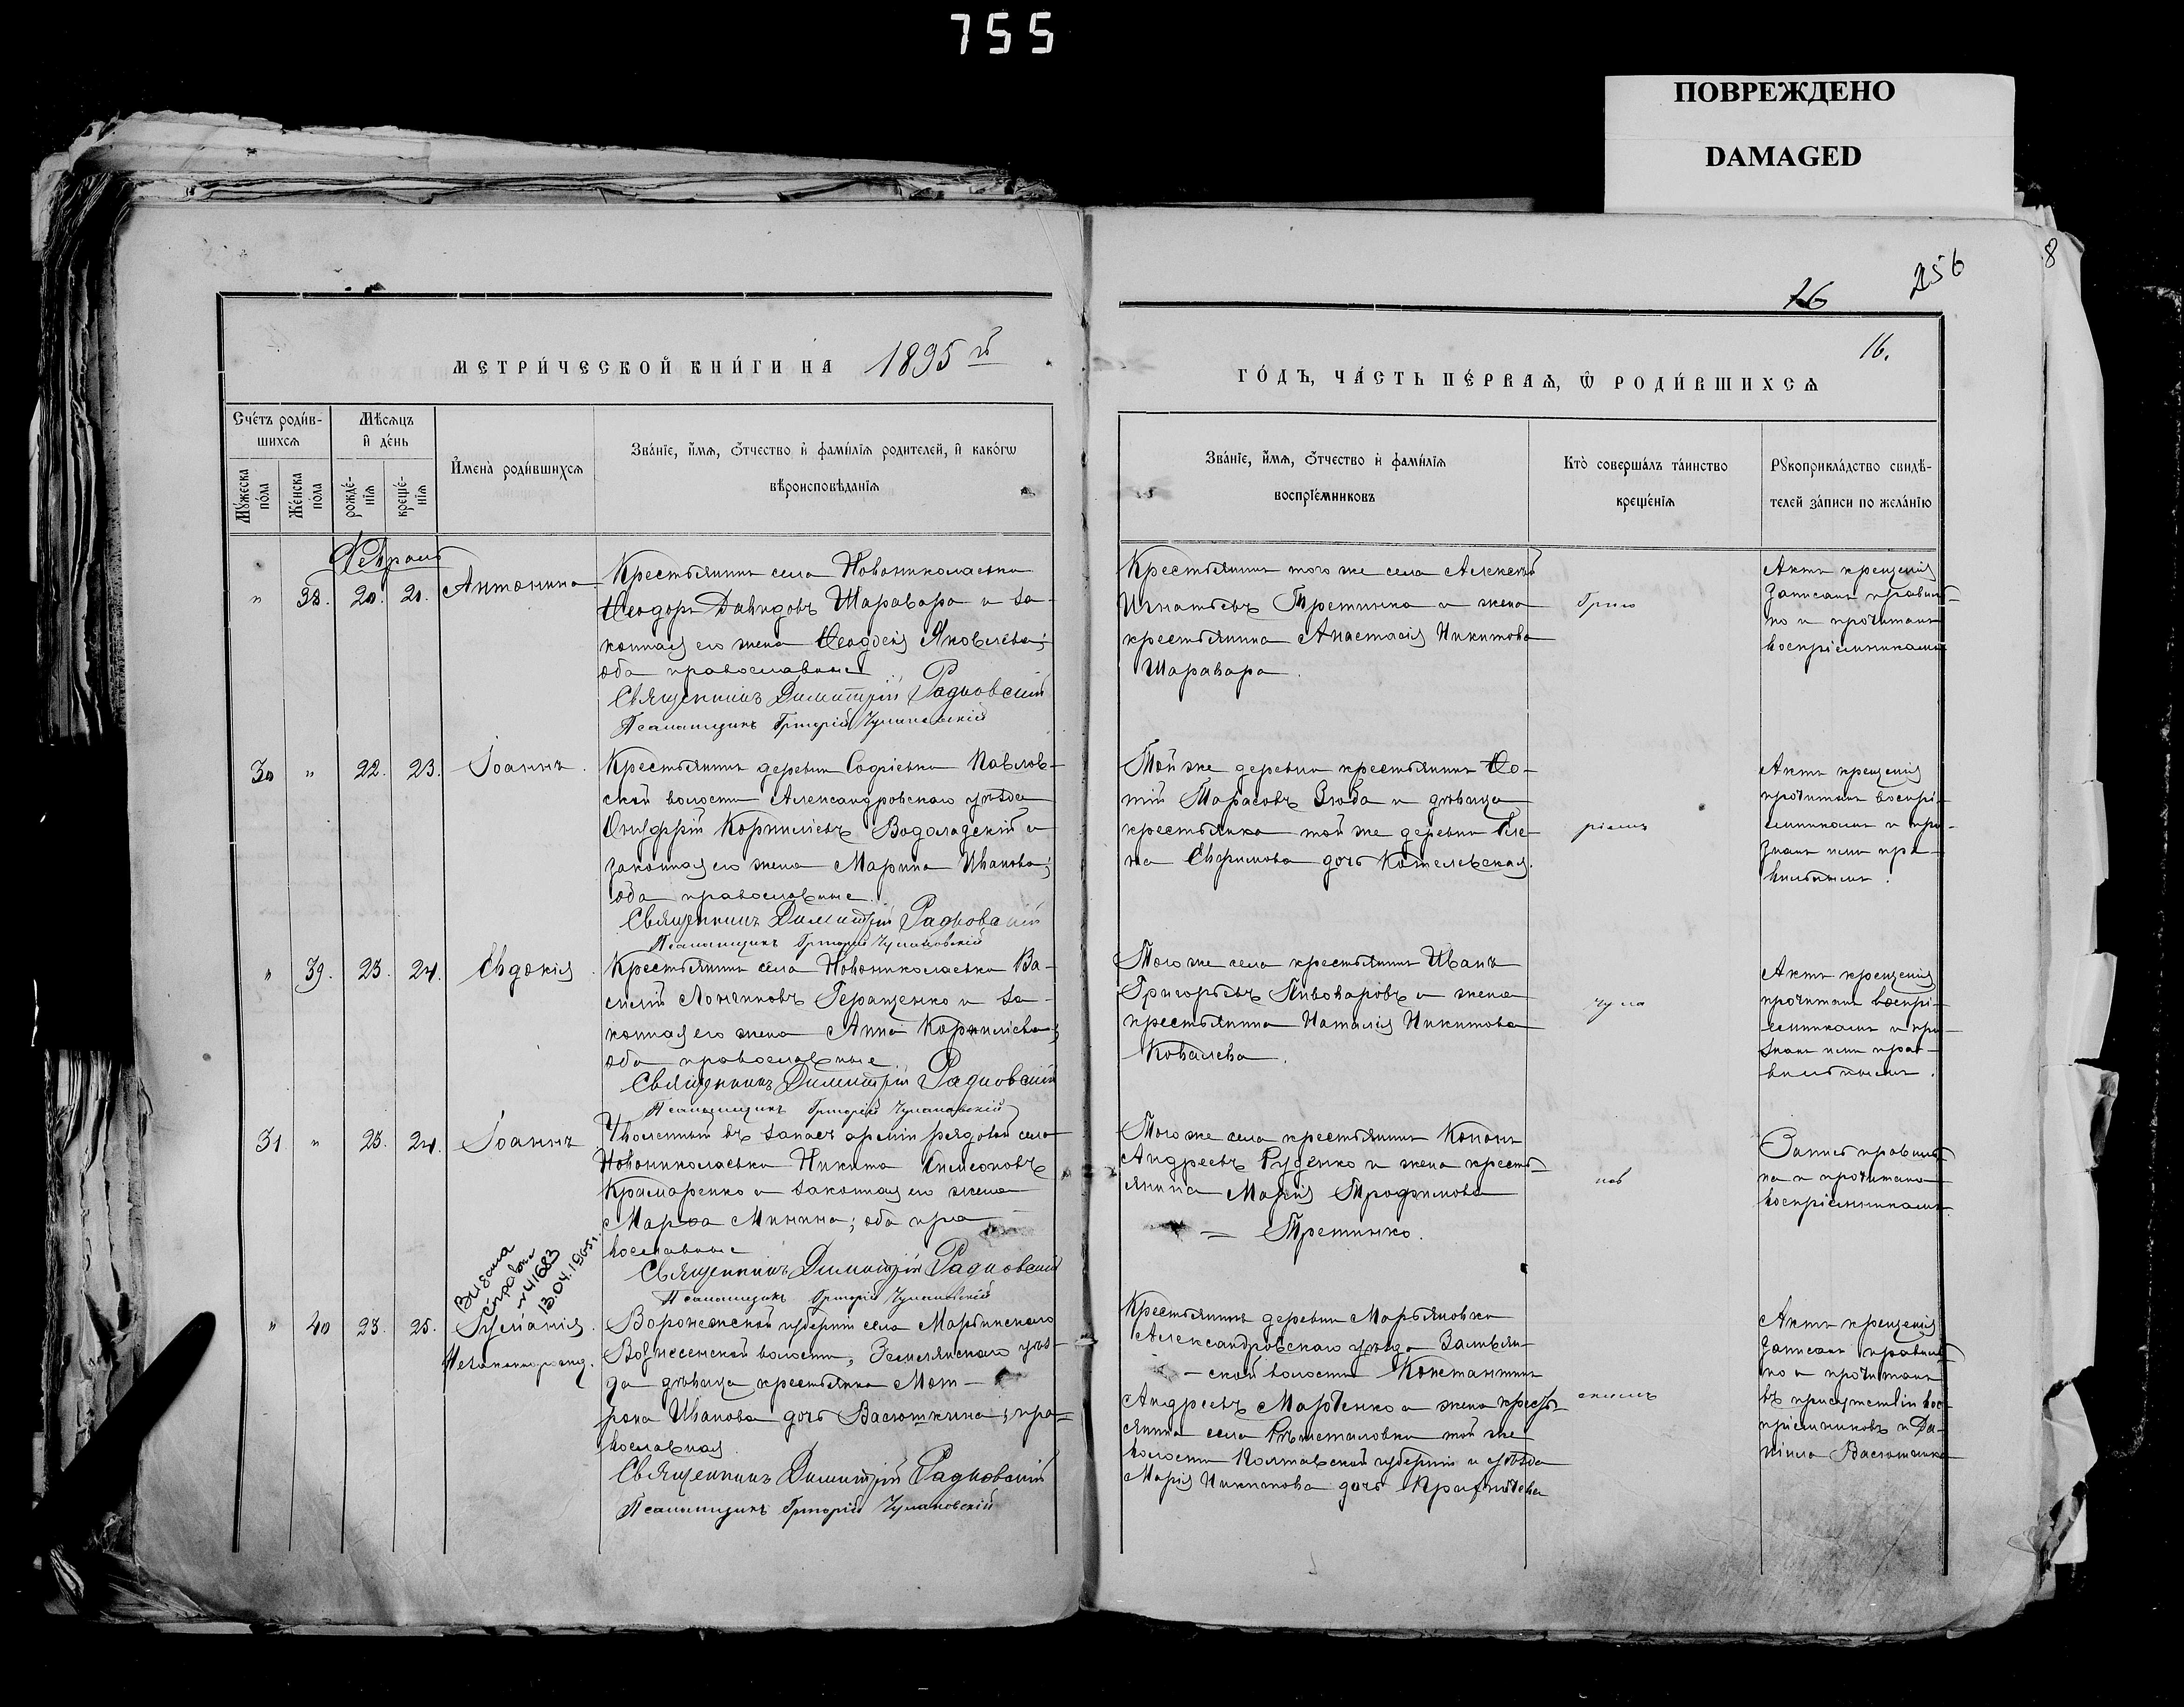 755
ПОВРЕЖДЕНО
DAMAGED
8
256
16
16.
МЕТРИ́ЧЕСКОЙ КНИ́ГИ НА 1895 й
ГО́ДЪ, ЧА́СТЬ ПЕ́РВАѦ, Ѿ РОДИ́ВШИХСѦ
Сче́тъ роди́в-
шихсѧ
Мѣ́сѧцъ
и҆ де́нь
Му́жеска
по́ла
Же́нска
по́ла
рожде́-
нїѧ
креще́-
нїѧ
И҆мена̀ роди́вшихсѧ
Зва́нїе, и҆́мѧ, ѻ҆́тчество и҆ фами́лїѧ родителей, и҆ како́гѡ
вѣроисповѣ́данїѧ
Зва́нїе, и҆́мѧ, ѻ҆́тчество и҆ фами́лїѧ
воспрїе́мниковъ
Кто̀ соверша́лъ та́инство
креще́нїѧ
Рꙋкоприкла́дство свидѣ́-
телей за́писи по жела́нїю
Февраль
" 38. 20. 20. Антонина
Крестьянинъ села Новониколаевки
Ѳеодоръ Давидовъ Шаравара и за-
конная его жена Ѳеодосія Яковлева;
оба православные
Священникъ Димитрій Радковский
Псаломщикъ Григорій Чулановскій
Крестьянинъ того же села Алексѣй
Игнатьевъ Третинко и жена
крестьянина Анастасія Никитова
Шаравара.
Григо
Актъ крещенія
записанъ правиль-
но и прочитанъ
воспріемникамъ
30 " 22. 23. Іоаннъ.
Крестьянинъ деревни Софіевки Павлов-
ской волости Александровскаго уѣзда
Онуфрій Корнилієвъ Водолазскій и
законная его жена Марина Иванова;
оба православные.
Священникъ Димитрій Радковскій
Псаломщикъ Григорій Чулановскій
Той же деревни крестьянинъ Фо-
тій Тарасовъ Зюба и дѣвица
крестьянка той же деревни Еле-
на Евфимова дочь Котелевская.
ріемъ
Актъ крещенія
прочитанъ воспрі-
емникамъ и при-
знанъ ими пра-
вильнымъ.
" 39. 23. 24. Евдокія.
Крестьянинъ села Новониколаевки Ва-
силій Лонгиновъ Геращенко и за-
конная его жена Анна Корнилієва;
оба православные
Священникъ Димитрій Радковскій
Псаломщикъ Григорій Чулановскій
Того же села крестьянинъ Иванъ
Григорьевъ Пивоваровъ и жена
крестьянина Наталія Никитова
Ковалева.
Чула
Актъ крещенія
прочитанъ воспрі-
емникамъ и при-
знанъ ими пра-
вильнымъ.
31 " 23. 24. Іоаннъ
Уволенный въ запасъ арміи рядовой села
Новониколаевки Никита Симеоновъ
Крамаренко и законная его жена
Марѳа Минина; оба пра-
вославные
Священникъ Димитрій Радковскій
Псаломщикъ Григорій Чулановскій
Того же села крестьянинъ Кононъ
Андреевъ Руденко и жена кресть-
янина Марія Трофимова
= Третинко.
нов
Запись правиль-
на и прочитана
воспріемникамъ.
Видана
справка
№41683
13.04.1965г.
" 40 23. 25. Гуліанія.
Незаконнорожд.
Воронежской губерніи села Марьинскаго
Вознесенской волости, Землянскаго уѣз-
да дѣвица крестьянка Мат-
рона Иванова дочь Васюткина; пра-
вославная.
Священникъ Димитрій Радковскій
Псаломщикъ Григорій Чулановскій
Крестьянинъ деревни Марьяновки
Александровскаго уѣзда
-ской волости Константинъ
Андреевъ Марченко и жена кресть-
янина села той же
волости Полтавской губерніи и уѣзда
Марія Никитова дочь
скимъ
Актъ крещенія
записанъ правиль-
но и прочитанъ
въ присутствіи вос-
пріемниковъ и Да-
ніила Васюткина